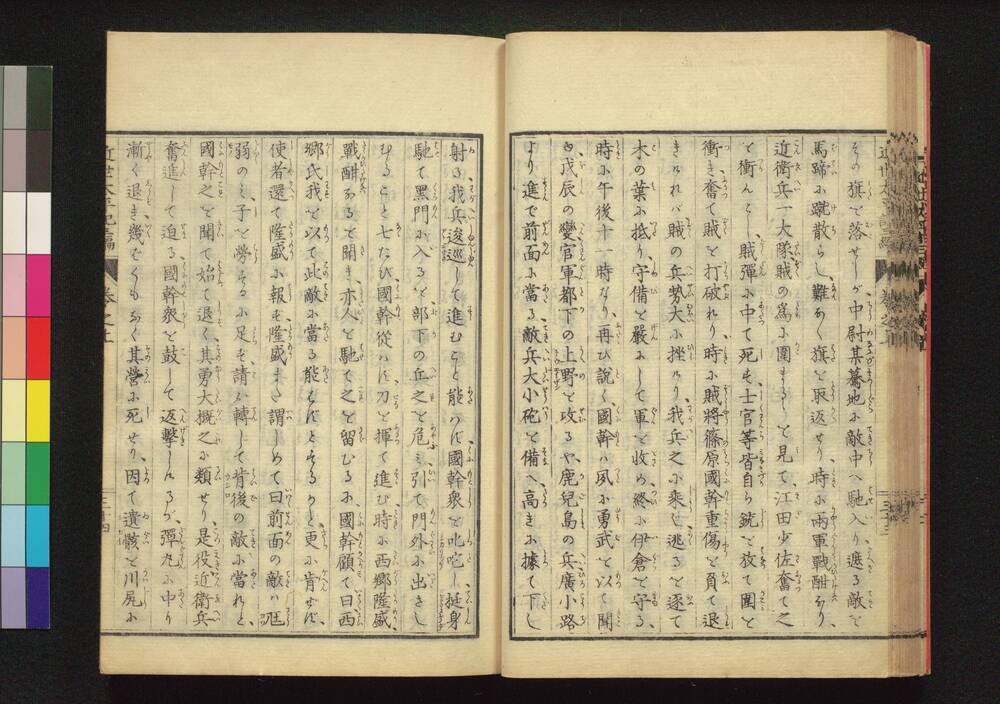 その旗を落せしが中尉某驀地に敵中へ馳入り遮る敵を
馬蹄に蹴散らし難なく旗を取返せり時に兩軍戰酣なり
近衛兵一大隊賊の爲に圍まるゝを見て江田少佐奮て之
を衝んとし賊彈に中て死す士官等皆自ら銃を放て圍を
衝き奮て賊を打破れり時に賊將篠原國幹重傷を負て退
きければ賊の兵勢大に挫けり我兵之に乘じ逃るを逐て
木の葉に抵り守備を嚴にして軍を收め終に伊倉を守る
時に午後十一時なり再び説く國幹は夙に勇武を以て聞
ゆ戊辰の變官軍都下の上野を攻るや鹿兒島の兵廣小路
より進で前面に當る敵兵大小砲を備へ高きに據て下し
射る我兵逡巡して進むこと能はず國幹衆を叱咤し挺身
馳て黑門に入るを部下の兵之を危み引て門外に出さし
むること七たび國幹從はず刀を揮て進む時に西郷隆盛
戰酣なるを聞き亦人を馳て之を留むるに國幹顧て曰西
郷氏我を以て此敵に當る能はずとするかと更に肯ぜず
使者還て隆盛に報ず隆盛また謂しめて曰前面の敵は尫
弱のみ子を勞するに足ず請ふ轉じて背後の敵に當れと
國幹之を聞て始て退く其勇大概之に類せり是役近衛兵
奮進して迫る國幹衆を鼓して返擊しけるが彈丸に中り
漸く退き幾ぞくもなく其營に死せり因て遺骸を川尻に
近世太平記三編
卷之十一
三十四